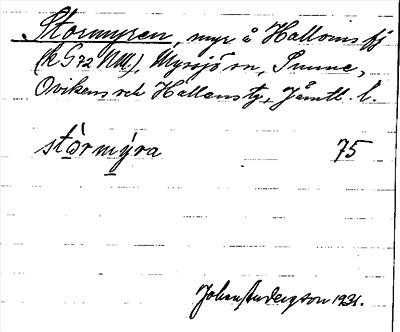 Stormyren, myr å Hallens fj
(k G 72 NM), Myssjö sn, Sunne,
Ovikens och Hallens tg, Jämtl. l.
stòrmýra 75
Johan Anderson 1931.